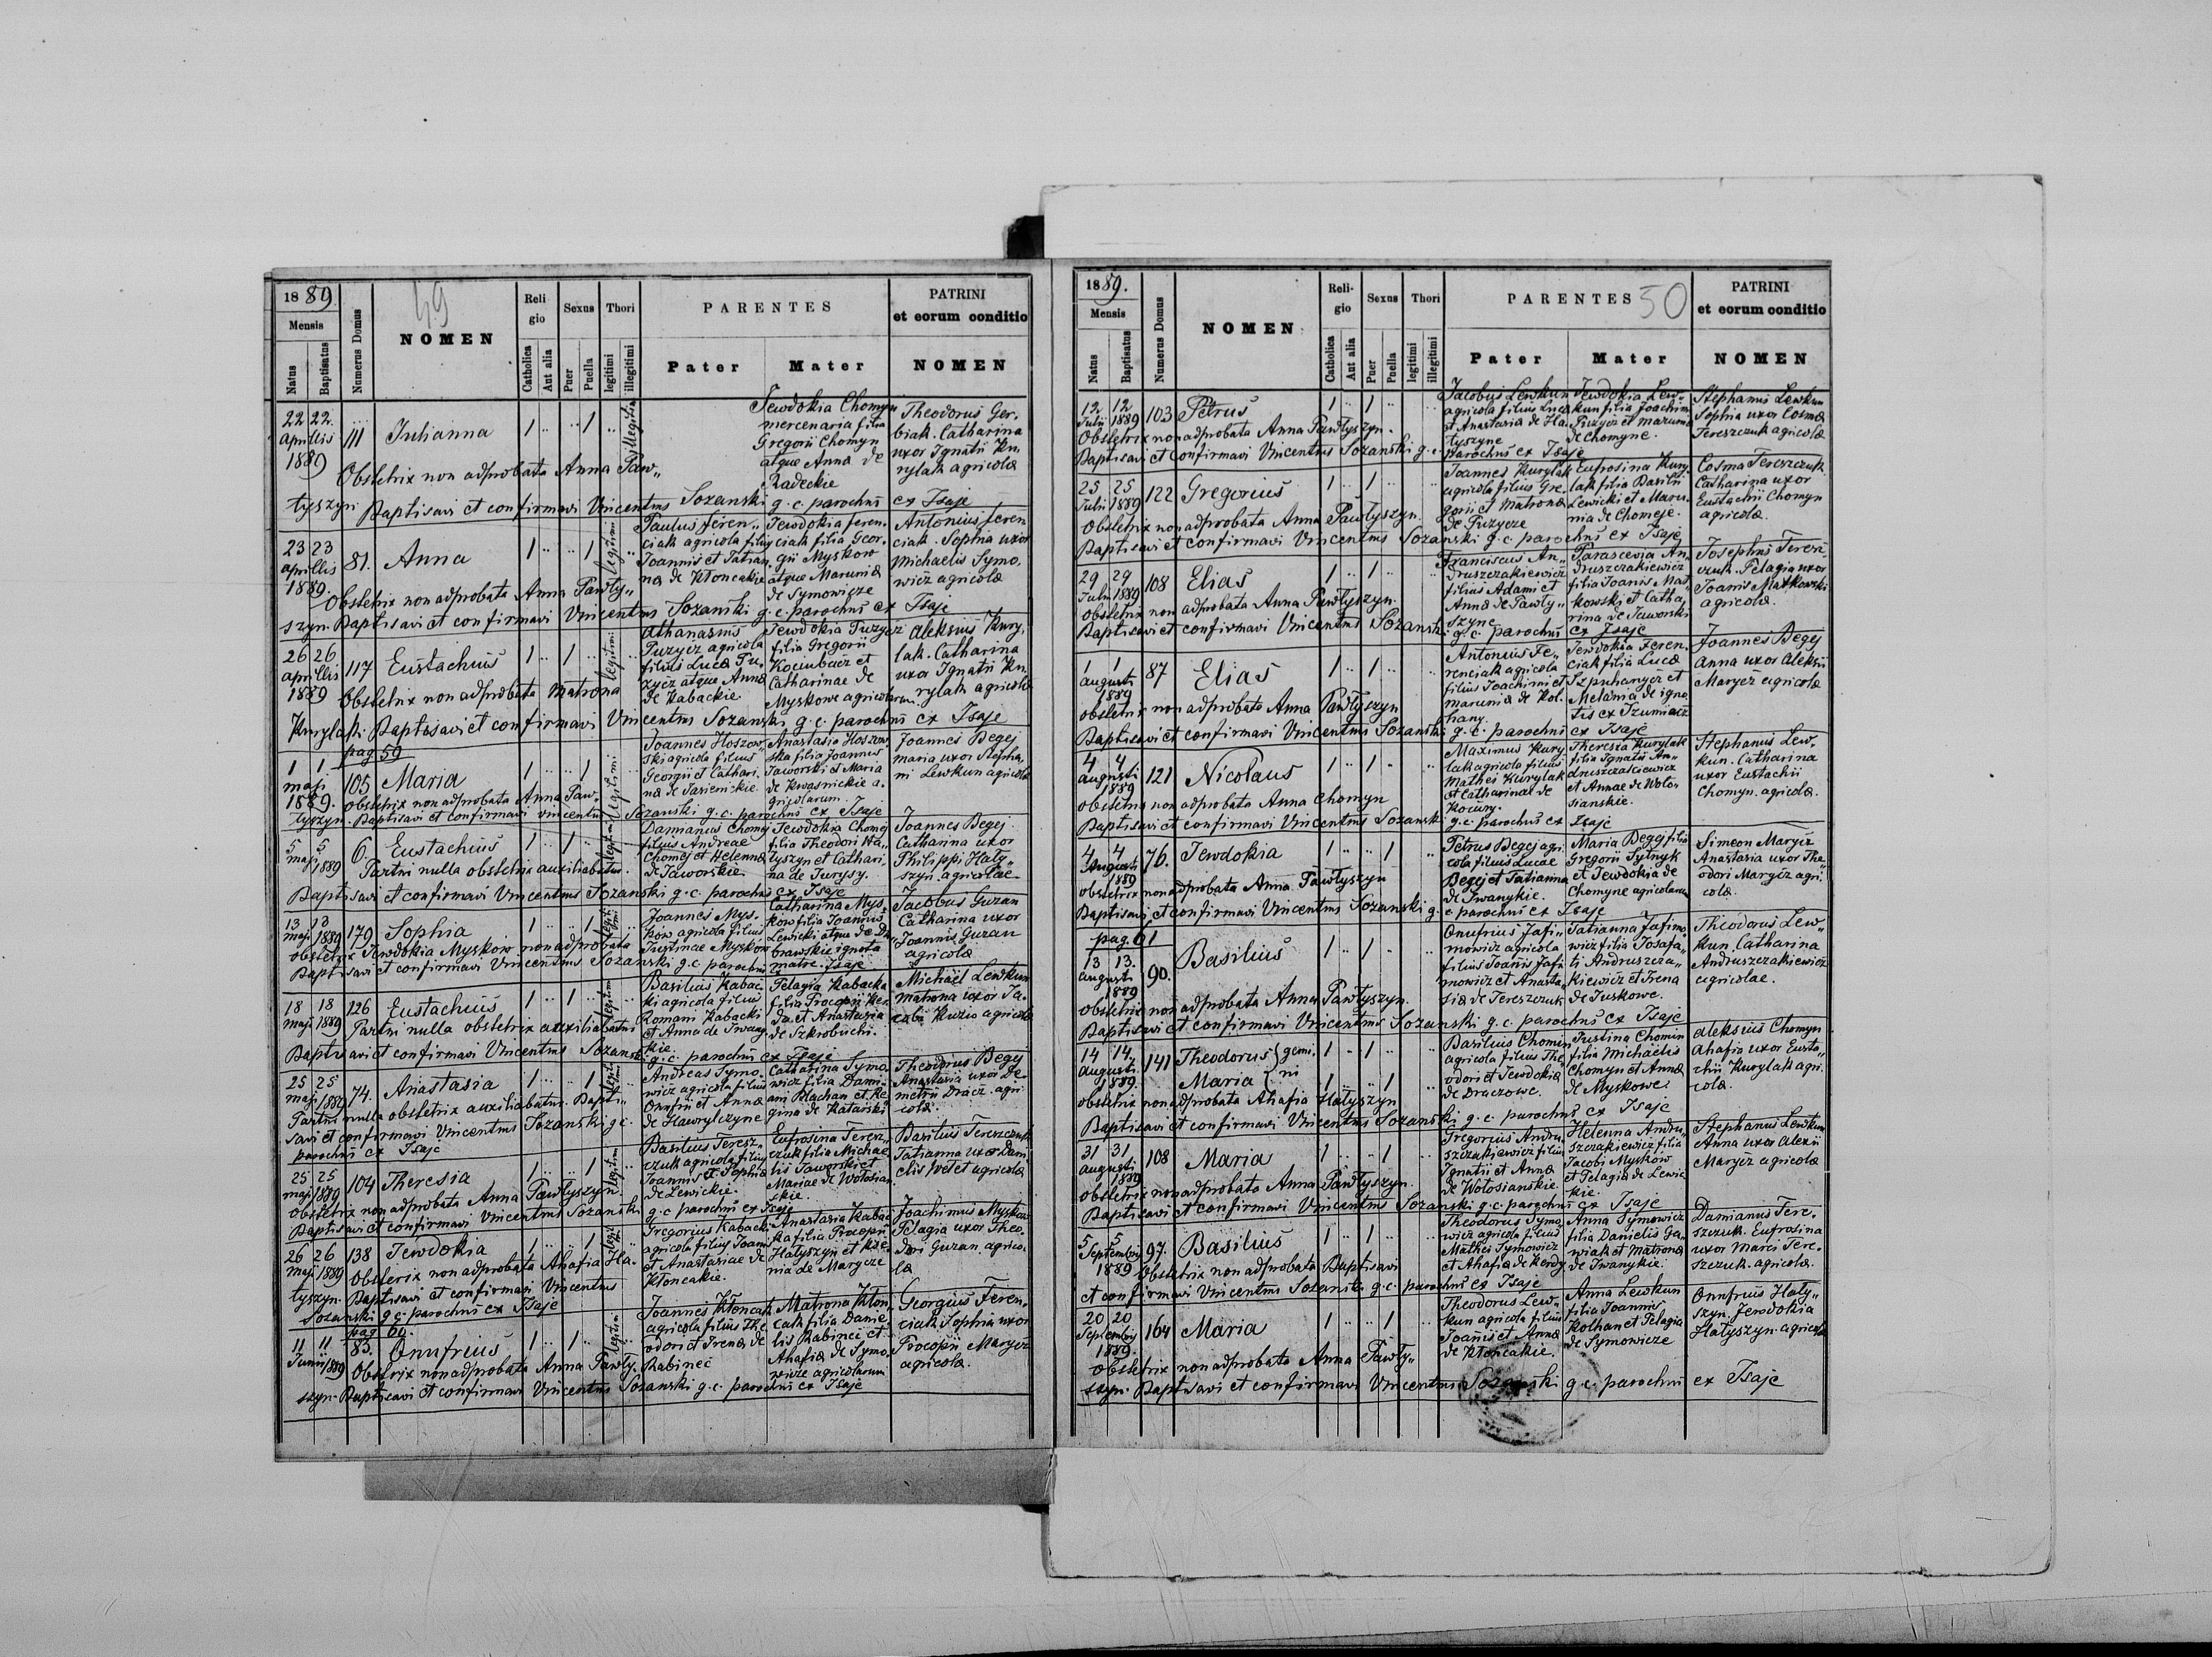 1889
49
Mensis
Natus
Baptisatus
Numerus Domus
NOMEN
Religio
Catholica
Aut alia
Sexus
Puer
Puella
Thori
legitimi
illegitimi
PARENTES
Pater
Mater
PATRINI
et eorum conditio
NOMEN
22 22 Aprillis 1889
111
Iulianna
1 .. .. 1 ..
Illegitimi
Jewdokia Chomyn
mercenaria filia
Gregorii Chomyn
atque Anna de
Radeckie
Theodorus Ger-
biak. Catharina
uxor Ignatii Ku
rylak agricolæ
Obstetrix non adprobata Anna Paw„
tyszyn Baptisavi et confirmavi Vincentus Sozanski g. c. parochus ex Isaje
23 23 aprillis 1889
81.
Anna
1 .. .. 1
legitimi
Paulus feren„
ciak agricola filius
Joannis et Tatian
na de Kłoncakie
Jewdokia feren
ciak filia Geor.
gii Myskow
atque Marunia
de Symowicze
Antonius feren
ciak. Sophia uxor
Michaelis Symo.
wicz agricolæ
Obstetrix non adprobata Anna Pawły„
szyn. Baptisavi et confirmavi Vincentus Sozanski g. c. parochus ex Isaje
26 26 aprillis 1889
117
Eustachius
1 .. 1 ..
legitimi
Athanasius
Puzycz agricola
filius Lucæ Pu.
zycz atque Anna
de Kabackie
Jewdokia Puzycz
filia Gregorii
Kociubacz et
Catharinae de
Myskowe agricolarum.
Aleksius Kury.
lak. Catharina
uxor Ignatii Ku
rylak agricolæ
Obstetrix non adprobata Matrona
Kurylak. Baptisavi et confirmavi Vincentus Sozanski g. c. parochus ex Isaje
pag 59
1 1 maji 1889.
105
Maria
1 .. .. 1
legitimi
Joannes Hoszow
ski agricola filius
Georgii et Cathari.
na de Jasienickie.
Anastasia Hoszow
ska filia Joannis
Jaworski et Maria
de Kwasnickie a.
gricolarum.
Joannes Begej
Maria uxor Stepha.
ni Lewkun agricolæ
Obstetrix non adprobata Anna Paw.
tyszyn. Baptisavi et confirmavi Vincentus Sozanski g. c. parochus ex Isaje
5 5 maji 1889
6.
Eustachius
1 .. 1 ..
legitimi
Damianus Chomej
filius Andreae
Chomej et Helenna
de Jaworskie
Jewdokia Chomej
filia Theodori Ha„
tyszyn et Cathari.
na de Jurysy.
Joannes Begej
Catharina uxor
Philippi Haty„
szyn. agricolae
Partui nulla obstetrix auxiliabatur.
Baptisavi et confirmavi Vincentus Sozanski g. c. parochus ex Isaje
13 13 maji 1889
179
Sophia
1 .. .. 1
Joannes Mys.
kow agricola filius
Justinae Myskow
Catharina Mys.
kow filia Joannis
Lewicki atque de Du
brawskie ignota
matre. Isaje
Jacobus Guzan
Catharina uxor
Joannis Guzan
agricolæ
Obstetrix Jewdokia Myskow non adprobata
Baptisavi et confirmavi Vincentus Sozanski g. c. parochus
18 18 maji 1889
126
Eustachius
1 .. 1 ..
legitimi
Basilius Kabac.
ki agricola filius
Romani Kabacki
et Anna de Iwany.
kie.
Pelagia Kabacka
filia Procopii
et Anastasia
de Szkrobuchi.
Michael Lewkun
Matrona uxor Ja.
cobi Kuzio agricolæ
Partui nulla obstetrix auxiliabatur
Baptisavi et confirmavi Vincentus Sozanski g. c. parochus ex Isaje
25 25 maji 1889
74.
Anastasia
1 .. .. 1
Andreas Symo.
wicz agricola filius
Onufrii et Anna
de Hawrylczyne
Catharina Symo
wicz filia Dami„
ani Blachan et Re
gina de Katarski
Theodorus Begej
Anastasia uxor De.
metrii Dracz. agri
colæ.
Partui nulla obstetrix auxiliabatur. Bapti„
savi et confirmavi Vincentus Sozanski g c.
parochus ex Isaje
25 25 maji 1889
104
Theresia
1 .. .. 1
legitimi
Basilius Teresz.
czuk agricola filius
Joannis et Sophia
de Lewickie.
Eufrosina Teresz„
czuk filia Michae
lis Jaworski et
Mariae de Wołosian
skie.
Basilius Tereszczuk
Tatianna uxor Dani
elis Wet et agricolæ
Obstetrix non adprobata Anna Pawłyszyn.
Baptisavi et confirmavi Vincentus Sozanski g. c. parochus ex Isaje
26 26 maji 1889
138
Jewdokia
1 .. .. 1
Gregorius Kabacki
agricola filius Joannis
et Anastasiae de
Kłoncakie.
Anastasia Kabac
ka filia Procopii
Hatyszyn et
nia de Marycze
Joachimus Myskow
Pelagia uxor Theo.
dori Guzan agrico
læ
Obstetrix non adprobata Ahafia Ha.
tyszyn. Baptisavi et confirmavi Vincentus
Sozanski g. c. parochus ex Isaje
pag 60.
11 11 Junii 1889
83.
Onufrius
1 .. 1 ..
legitimi
Joannes Kłoncak
agricola filius The
odori et Irena de
Rabineć
Matrona Kłon
cak filia Danie.
lis Rabinec et
Ahafia de Symo.
wicze agricolarum
Georgius Feren.
ciak Sophia uxor
Procopii Marycz
agricolæ.
Obstetrix non adprobata Anna Pawły.
szyn. Baptisavi et confirmavi Vincentus Sozanski g. c. parochus ex Isaje
1889.
50
Mensis
Natus
Baptisatus
Numerus Domus
NOMEN
Religio
Catholica
Aut alia
Sexus
Puer
Puella
Thori
legitimi
illegitimi
PARENTES
Pater
Mater
PATRINI
et eorum conditio
NOMEN
12 12 Julii 1889
103
Petrus
1 .. 1 ..
Jacobus Lewkun
agricola filius Lucæ
et Anastasia de Ha
tyszyne
Jewdokia Lew„
kun filia Joachim
Puzycz et Maruna
de Chomyne.
Stephanus Lewkun
Sophia uxor Cosmæ
Tereszczuk agricolæ
Obstetrix non adprobata Anna Pawłyszyn.
Baptisavi et Confirmavi Vincentus Sozanski g. c. parochus ex Isaje
25 25 Julii 1889
122
Gregorius
1 .. 1 ..
Joannes Kurylak
agricola filius Gre.
gorii et Matrona
de Puzycze
Eufrosina Kury
lak filia Basilii
Lewicki et Maru.
nia de Chomeje.
Cosma Tereszczuk
Catharina uxor
Eustachii Chomyn
agricolæ.
Obstetrix non adprobata Anna Pawłyszyn.
Baptisavi et confirmavi Vincentus Sozanski g. c. parochus ex Isaje
29 29 Julii 1889
108
Elias
1 .. 1 ..
Franciscus An„
druszczakiewicz
filius Adami et
Anna de Pawły„
szyne
Parascevia An
druszczakiewicz
filia Joanis Mat
kowski et Catha,
rina de Jaworski
Josephus Teresz
czuk. Pelagia uxor
Joannis Matkowski
agricolæ.
Obstetrix non adprobata Anna Pawłyszyn.
Baptisavi et confirmavi Vincentus Sozanski g. c. parochus ex Isaje
1 1 augusti 1889
87
Elias
1 .. 1 ..
Antonius Fe„
renciak agricola
filius Joachimi et
Marunia de Kol.
hany.
Jewdokia Feren.
ciak filia Lucæ
Szpuhanycz et
Melania de igno
tis ex Izumiacz
Joannes Begej
Anna uxor Aleksii
Marycz agricolæ
obstetrix non adprobata Anna Pawłyszyn
Baptisavi et confirmavi Vincentus Sozanski g. c. parochus ex Isaje
4 4 augusti 1889
121
Nicolaus
1 .. 1 ..
Maximus Kury
lak agricola filius
Mathei Kurylak
et Catharinae de
Kocury.
Theresia Kurylak
filia Ignatii An„
druszczakiewicz
et Annae de Woło„
sianskie.
Stephanus Lew„
kun. Catharina
uxor Eustachii
Chomyn. agricolæ.
obstetrix non adprobata Anna Chomyn
Baptisavi et confirmavi Vincentus Sozanski g. c. parochus ex Isaje
4 4 Augusti 1889
76.
Jewdokia
1 .. .. 1
Petrus Begej agri.
cola filius Lucae
Begej et Tatianna
de Iwanykie.
Maria Begej filia
Gregorii Sytnyk
et Jewdokia de
Chomyne agricolarum
Simeon Marycz
Anastasia uxor The
odori Marycz agri.
colæ.
obstetrix non adprobata Anna Pawłyszyn
Baptisavi et confirmavi Vincentus Sozanski g. c parochus ex Isaje
pag. 61
13 13. augusti 1889
90.
Basilius
1 .. 1 ..
Onufrius Jafi„
mowicz agricola
filius Joannis Jafi
mowicz et Anasta„
sia de Tereszczuk
Tatianna Jafimo
wicz filia Josafa„
ti Andruszcza„
kiewicz et Irena
de Juskowe.
Theodorus Lew„
kun. Catharina
Andruszczakiewicz
agricolae.
obstetrix non adprobata Anna Pawłyszyn.
Baptisavi et confirmavi Vincentus Sozanski g. c. parochus ex Isaje
14 14. Augusti 1889.
141
Theodorus } gemi.
Maria } ni
1 .. 1 ..
1 .. .. 1
Basilius Chomin
agricola filius The
odori et Jewdokia
de Draczowe.
Justina Chomin
filia Michaelis
Chomyn et Anna
de Myskowe.
Aleksius Chomyn
Ahafia uxor Eusta„
chii Kurylak agri.
colæ.
obstetrix non adprobata Ahafia Hatyszyn
Baptisavi et confirmavi Vincentus Sozanski g. c. parochus ex Isaje
31 31 augusti 1889
108
Maria
1 .. .. 1
Gregorius Andru
szczakiewicz filius
Ignatii et Anna
de Wołosianskie.
Helenna Andru„
szczakiewicz filia
Jacobi Myskow
et Pelagia de Lewic
kie.
Stephanus Lewkun
Anna uxor Alexii
Marycz agricolæ
obstetrix non adprobata Anna Pawłyszyn.
Baptisavi et confirmavi Vincentus Sozanski g. c. parochus ex Isaje
5 5 Septembris 1889
97.
Basilius
1 .. 1 ..
Theodorus Symo
wicz agricola filius
Mathei Symowicz
et Ahafia de Kerdy
Anna Symowicz
filia Danielis Ga„
wiak et Matrona
de Iwanykie.
Damianus Tere.
szczuk. Eufrosina
uxor Marci Tere.
szczuk. agricolæ.
Obstetrix non adprobata Baptisavi
et confirmavi Vincentus Sozanski g. c. parochus ex Isaje
20 20 Septembris 1889.
164
Maria
1 .. .. 1
Theodorus Lew„
kun agricola filius
Joannis et Anna
de Kłoncakie.
Anna Lewkun
filia Joannis
Kolhan et Pelagia
de Symowicze
Onufrius Haty„
szyn. Jewdokia
Hatyszyn. agricolæ
obstetrix non adprobata Anna Pawły„
szyn. Baptisavi et confirmavi Vincentus Sozanski g. c. parochus ex Isaje